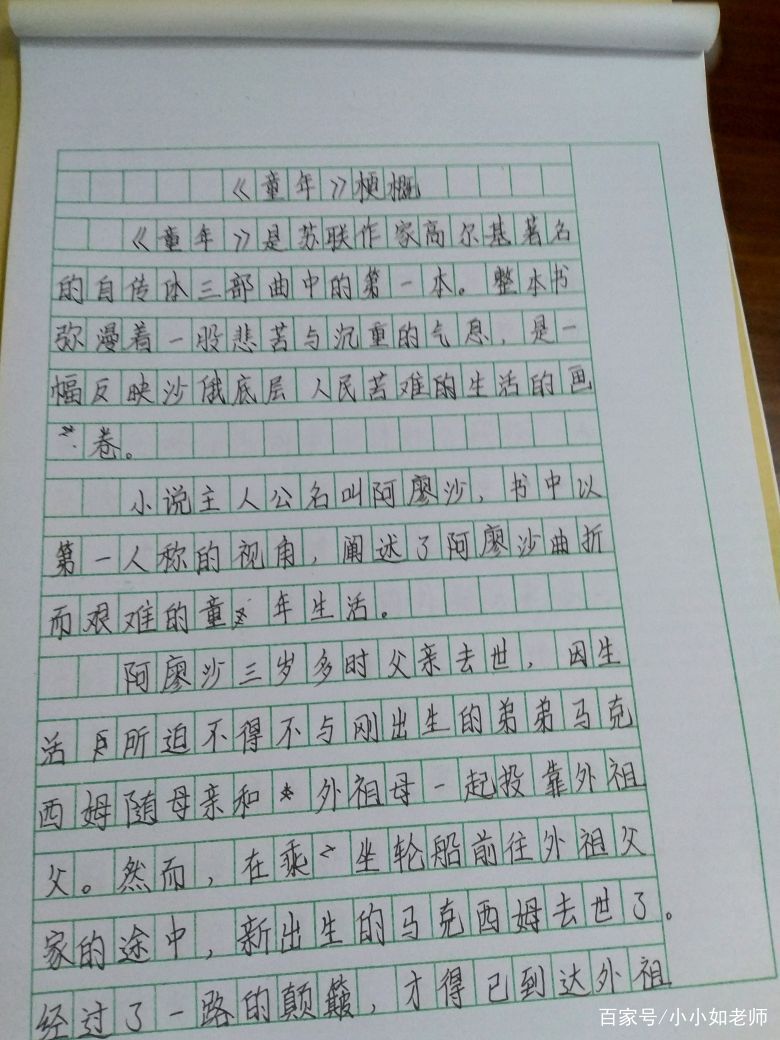 《童年》梗概
《童年》是苏联作家高尔基著名
的自传体三部曲中的第一本。整本书
弥漫着一股悲苦与沉重的气息，是一
幅反映沙俄底层人民苦难的生活的画
卷。
小说主人公名叫阿廖沙，书中以
第一人称的视角，阐述了阿廖沙曲折
而艰难的童年生活。
阿廖沙三岁多时父亲去世，因生
活所迫不得不与刚出生的弟弟马克
西姆随母亲和外祖母一起投靠外祖
父。然而，在乘坐轮船前往外祖父
家的途中，新出生的马克西姆去世了。
经过了一路的颠簸，才得已到达外祖
百家号/小小如老师